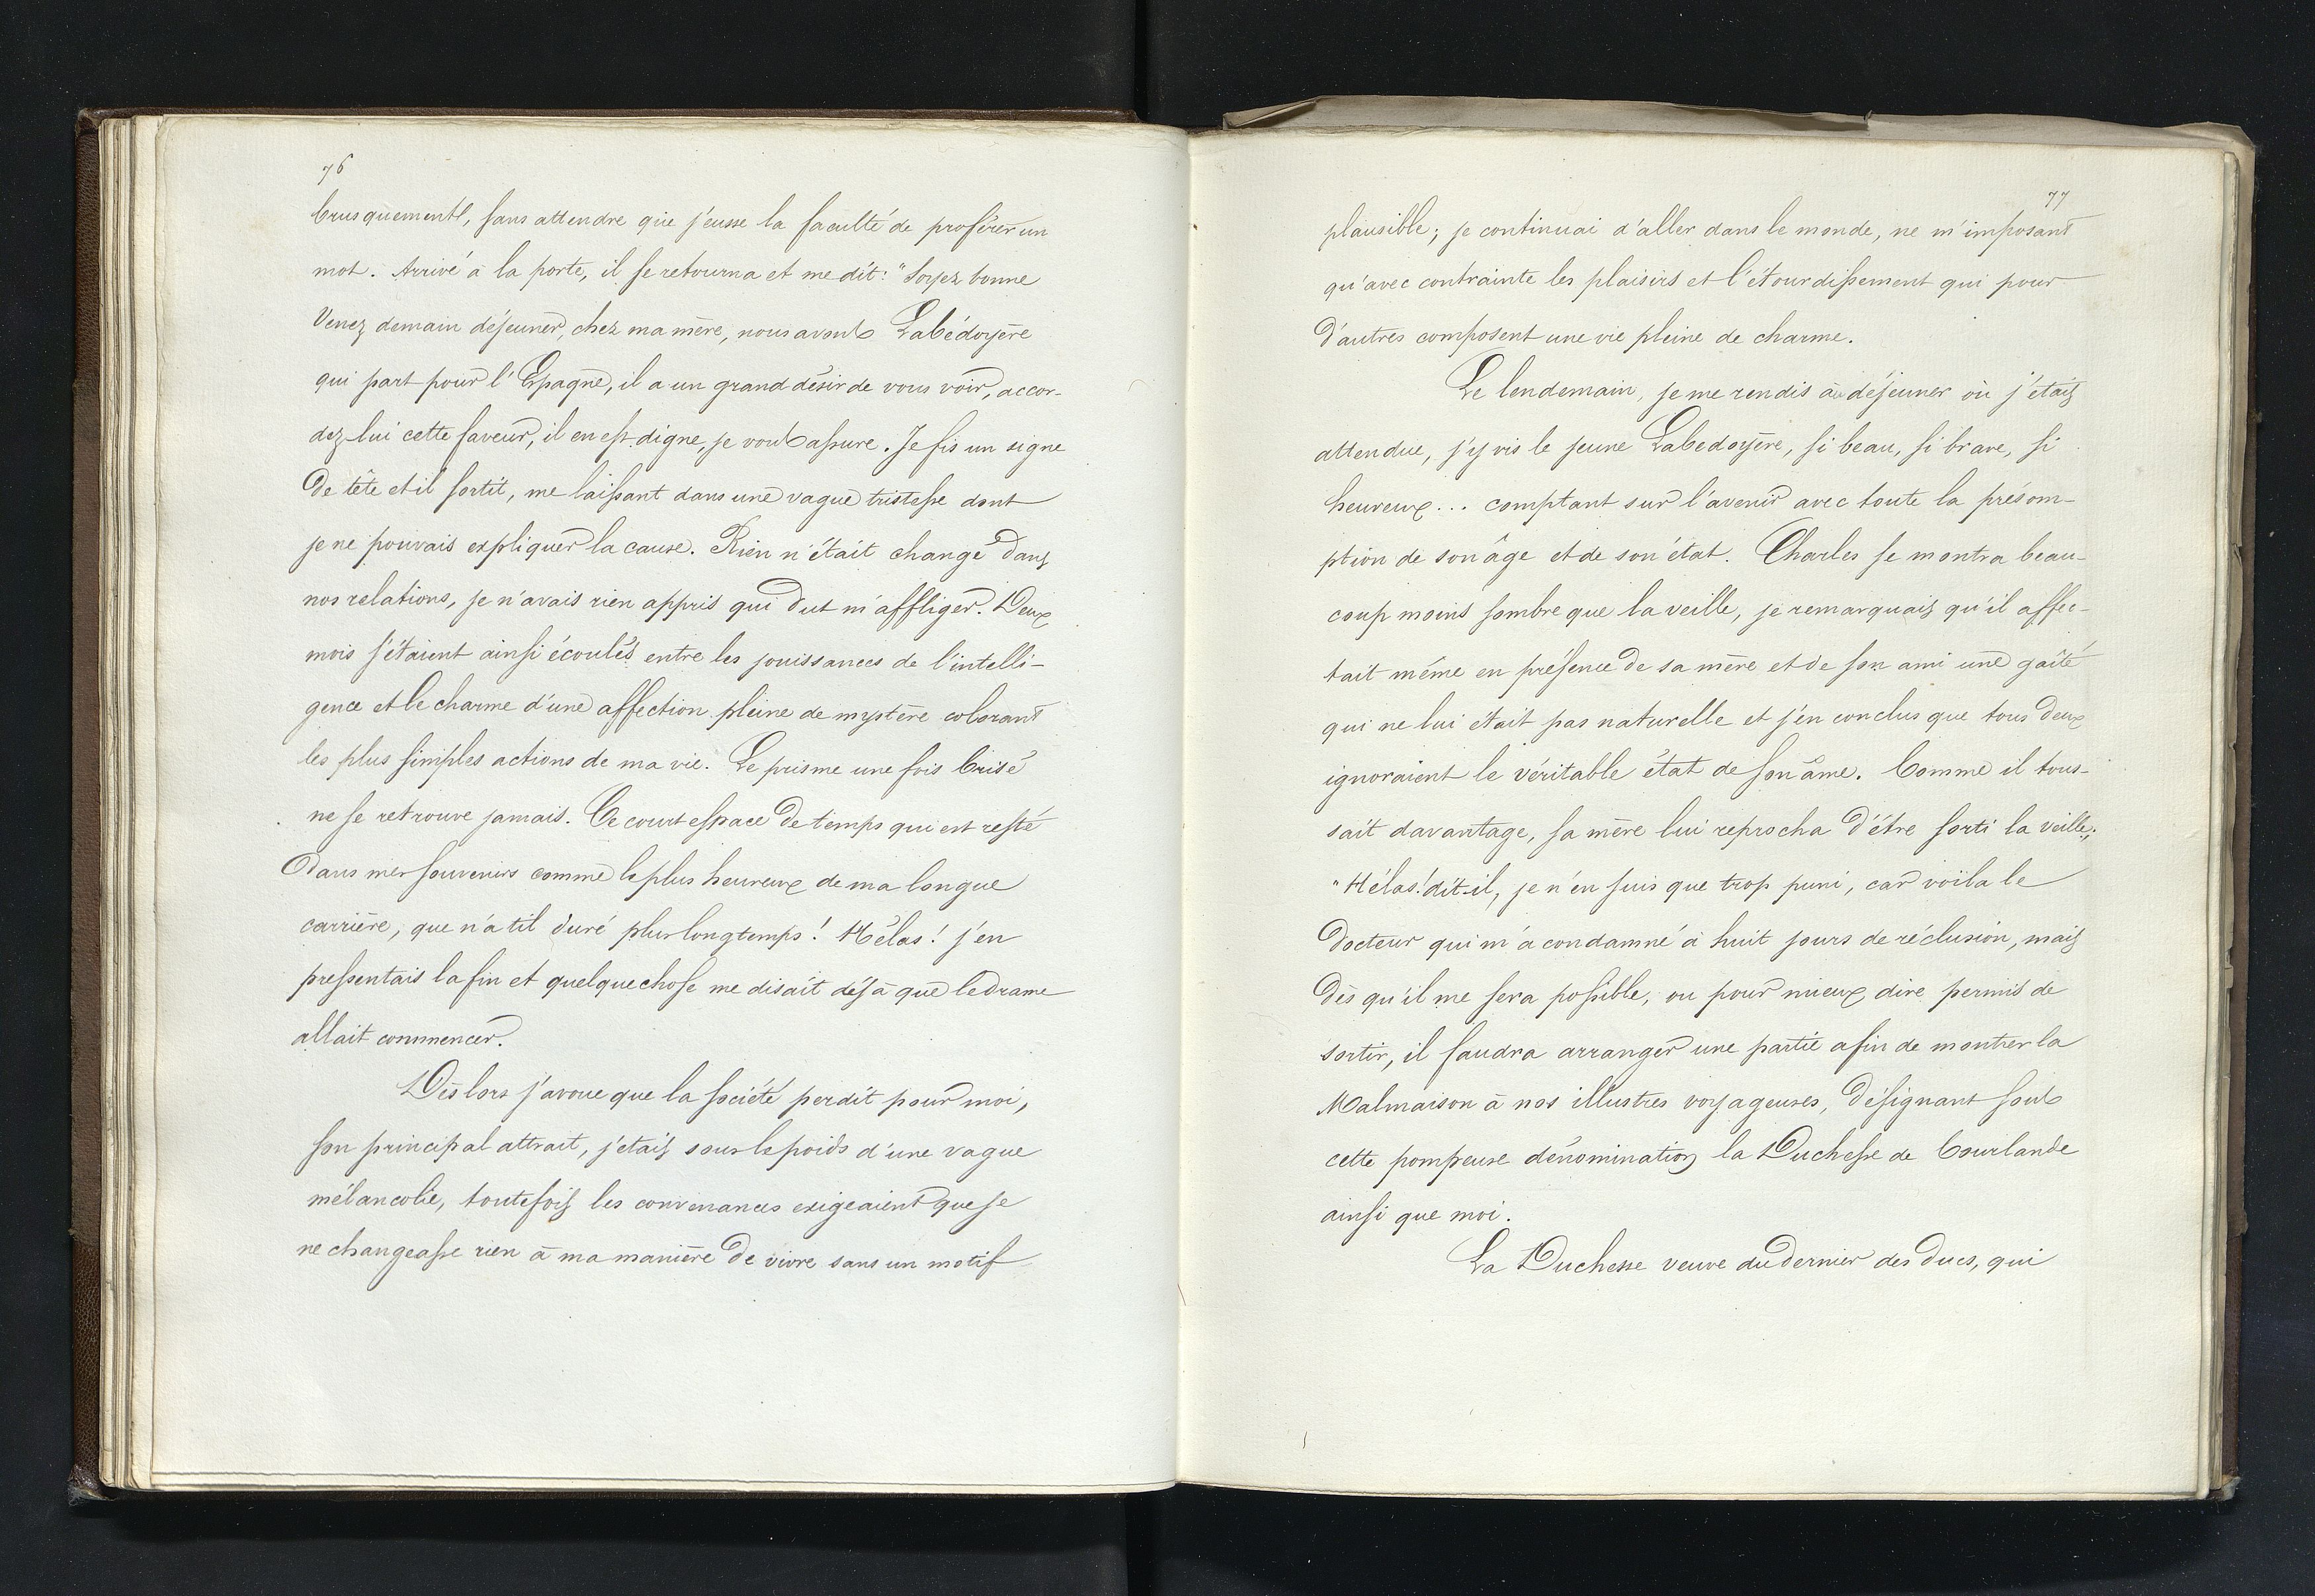 76
brusquement, sans attendre que j'eusse la faculté de proférer un
mot. Arrivé à la porte, il se retourna et me dit: "Soyez bonne
Venez demain déjeuner, chez ma mère, nous avons Labédoyère
qui part pour l'Espagne, il a un grand désir de vous voir, accor-
dez-lui cette faveur, il en est digne, je vous assure. Je fis un signe
de tête et il sortit, me laissant dans une vague tristesse dont
je ne pouvais expliquer la cause. Rien n'était changé dans
nos relations, je n'avais rien appris qui dut m'affliger. Deux
mois s'étaient ainsi écoulés entre les jouissances de l'intelli-
gence et le charme d'une affection pleine de mystère colorant
les plus simples actions de ma vie. Le prisme une fois brisé
ne se retrouve jamais. Ce court espace de temps qui est resté
dans mes souvenirs comme le plus heureux de ma longue
carrière, que n'a til duré plus longtemps! Hélas! j'en
pressentais la fin et quelque chose me disait déjà que le drame
allait commencer.
Dès lors j'avoue que la société perdit pour moi,
son principal attrait, j'étais sous le poids d'une vague
mélancolie, toutefois les convenances exigeaient que je
ne changeasse rien à ma manière de vivre sans un motif
77
plausible; je continuai d'aller dans le monde, ne m'imposant
qu'avec contrainte les plaisirs et l'étourdissement qui pour
d'autres composent une vie pleine de charme.
Le lendemain, je me rendis au déjeuner où j'étais
attendue, j'y vis le jeune Labedoyère, si beau, si brave, si
heureux... comptant sur l'avenir avec toute la présom-
ption de son âge et de son état. Charles se montra beau-
coup moins sombre que la veille, je remarquais qu'il affec-
tait même en présence de sa mère et de son ami une gaîté
qui ne lui était pas naturelle et j'en conclus que tous deux
ignoraient le véritable état de son âme. Comme il tous-
sait davantage, sa mère lui reprocha d'être sorti la veille;
"Hélas! dit-il, je n'en suis que trop puni, car voila le
Docteur qui m'a condamné à huit jours de réclusion, mais
dès qu'il me sera possible, ou pour mieux dire permis de
sortir, il faudra arranger une partie afin de montrer la
Malmaison à nos illustres voyageuses, désignant sous
cette pompeuse dénomination la Duchesse de Courlande
ainsi que moi.
La Duchesse veuve du dernier des ducs, qui